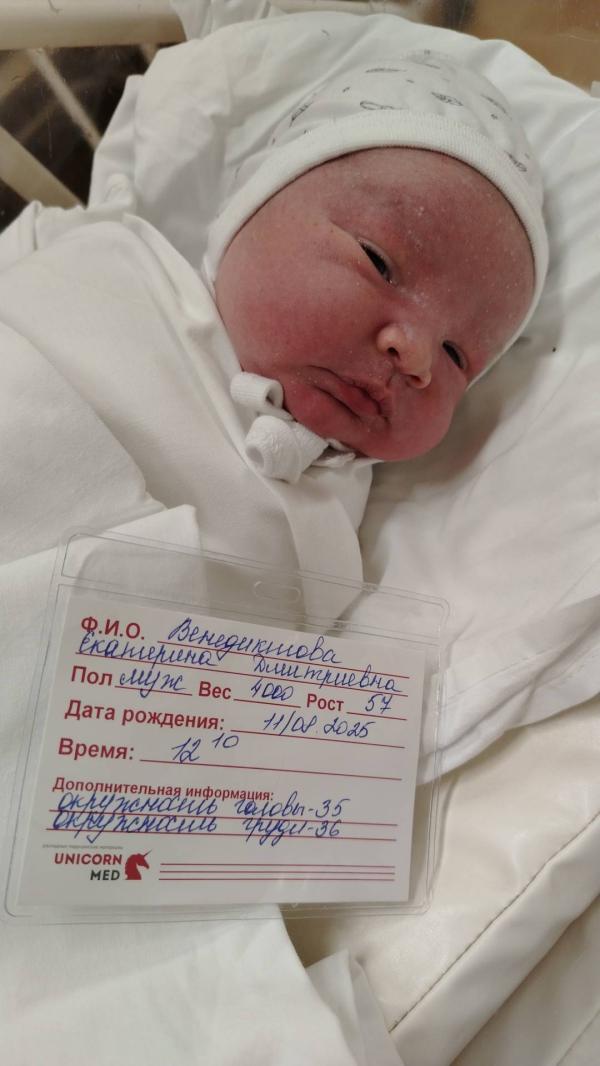 Ф.И.О. Венедиктова
Екатерина Дмитриевна
Пол муж Вес 4000 Рост 57
Дата рождения: 11/08.2025
Время: 12 10
Дополнительная информация:
окружность головы-35
окружность груди-36
UNICORN
MED